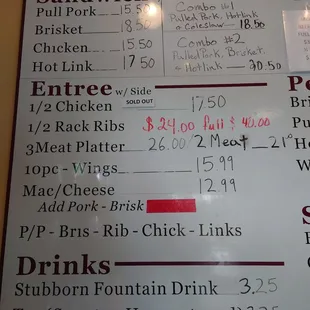 Pull Pork 15.50
Brisket 18.50
Chicken 15.50
Hot Link 17.50
Combo #1
Pulled Pork, Hotlink
+ Coleslaw - 18.50
Combo #2
Pulled Pork, Brisket
+ Hotlink - 20.50
Entree w/ Side
SOLD OUT
1/2 Chicken 17.50
1/2 Rack Ribs $24.00 full $ 40.00
3Meat Platter 26.00/2 Meat 21°
10pc - Wings 15.99
Mac/Cheese 12.99
Add Pork - Brisk
P/P - Bris - Rib - Chick - Links
Drinks
Stubborn Fountain Drink 3.25